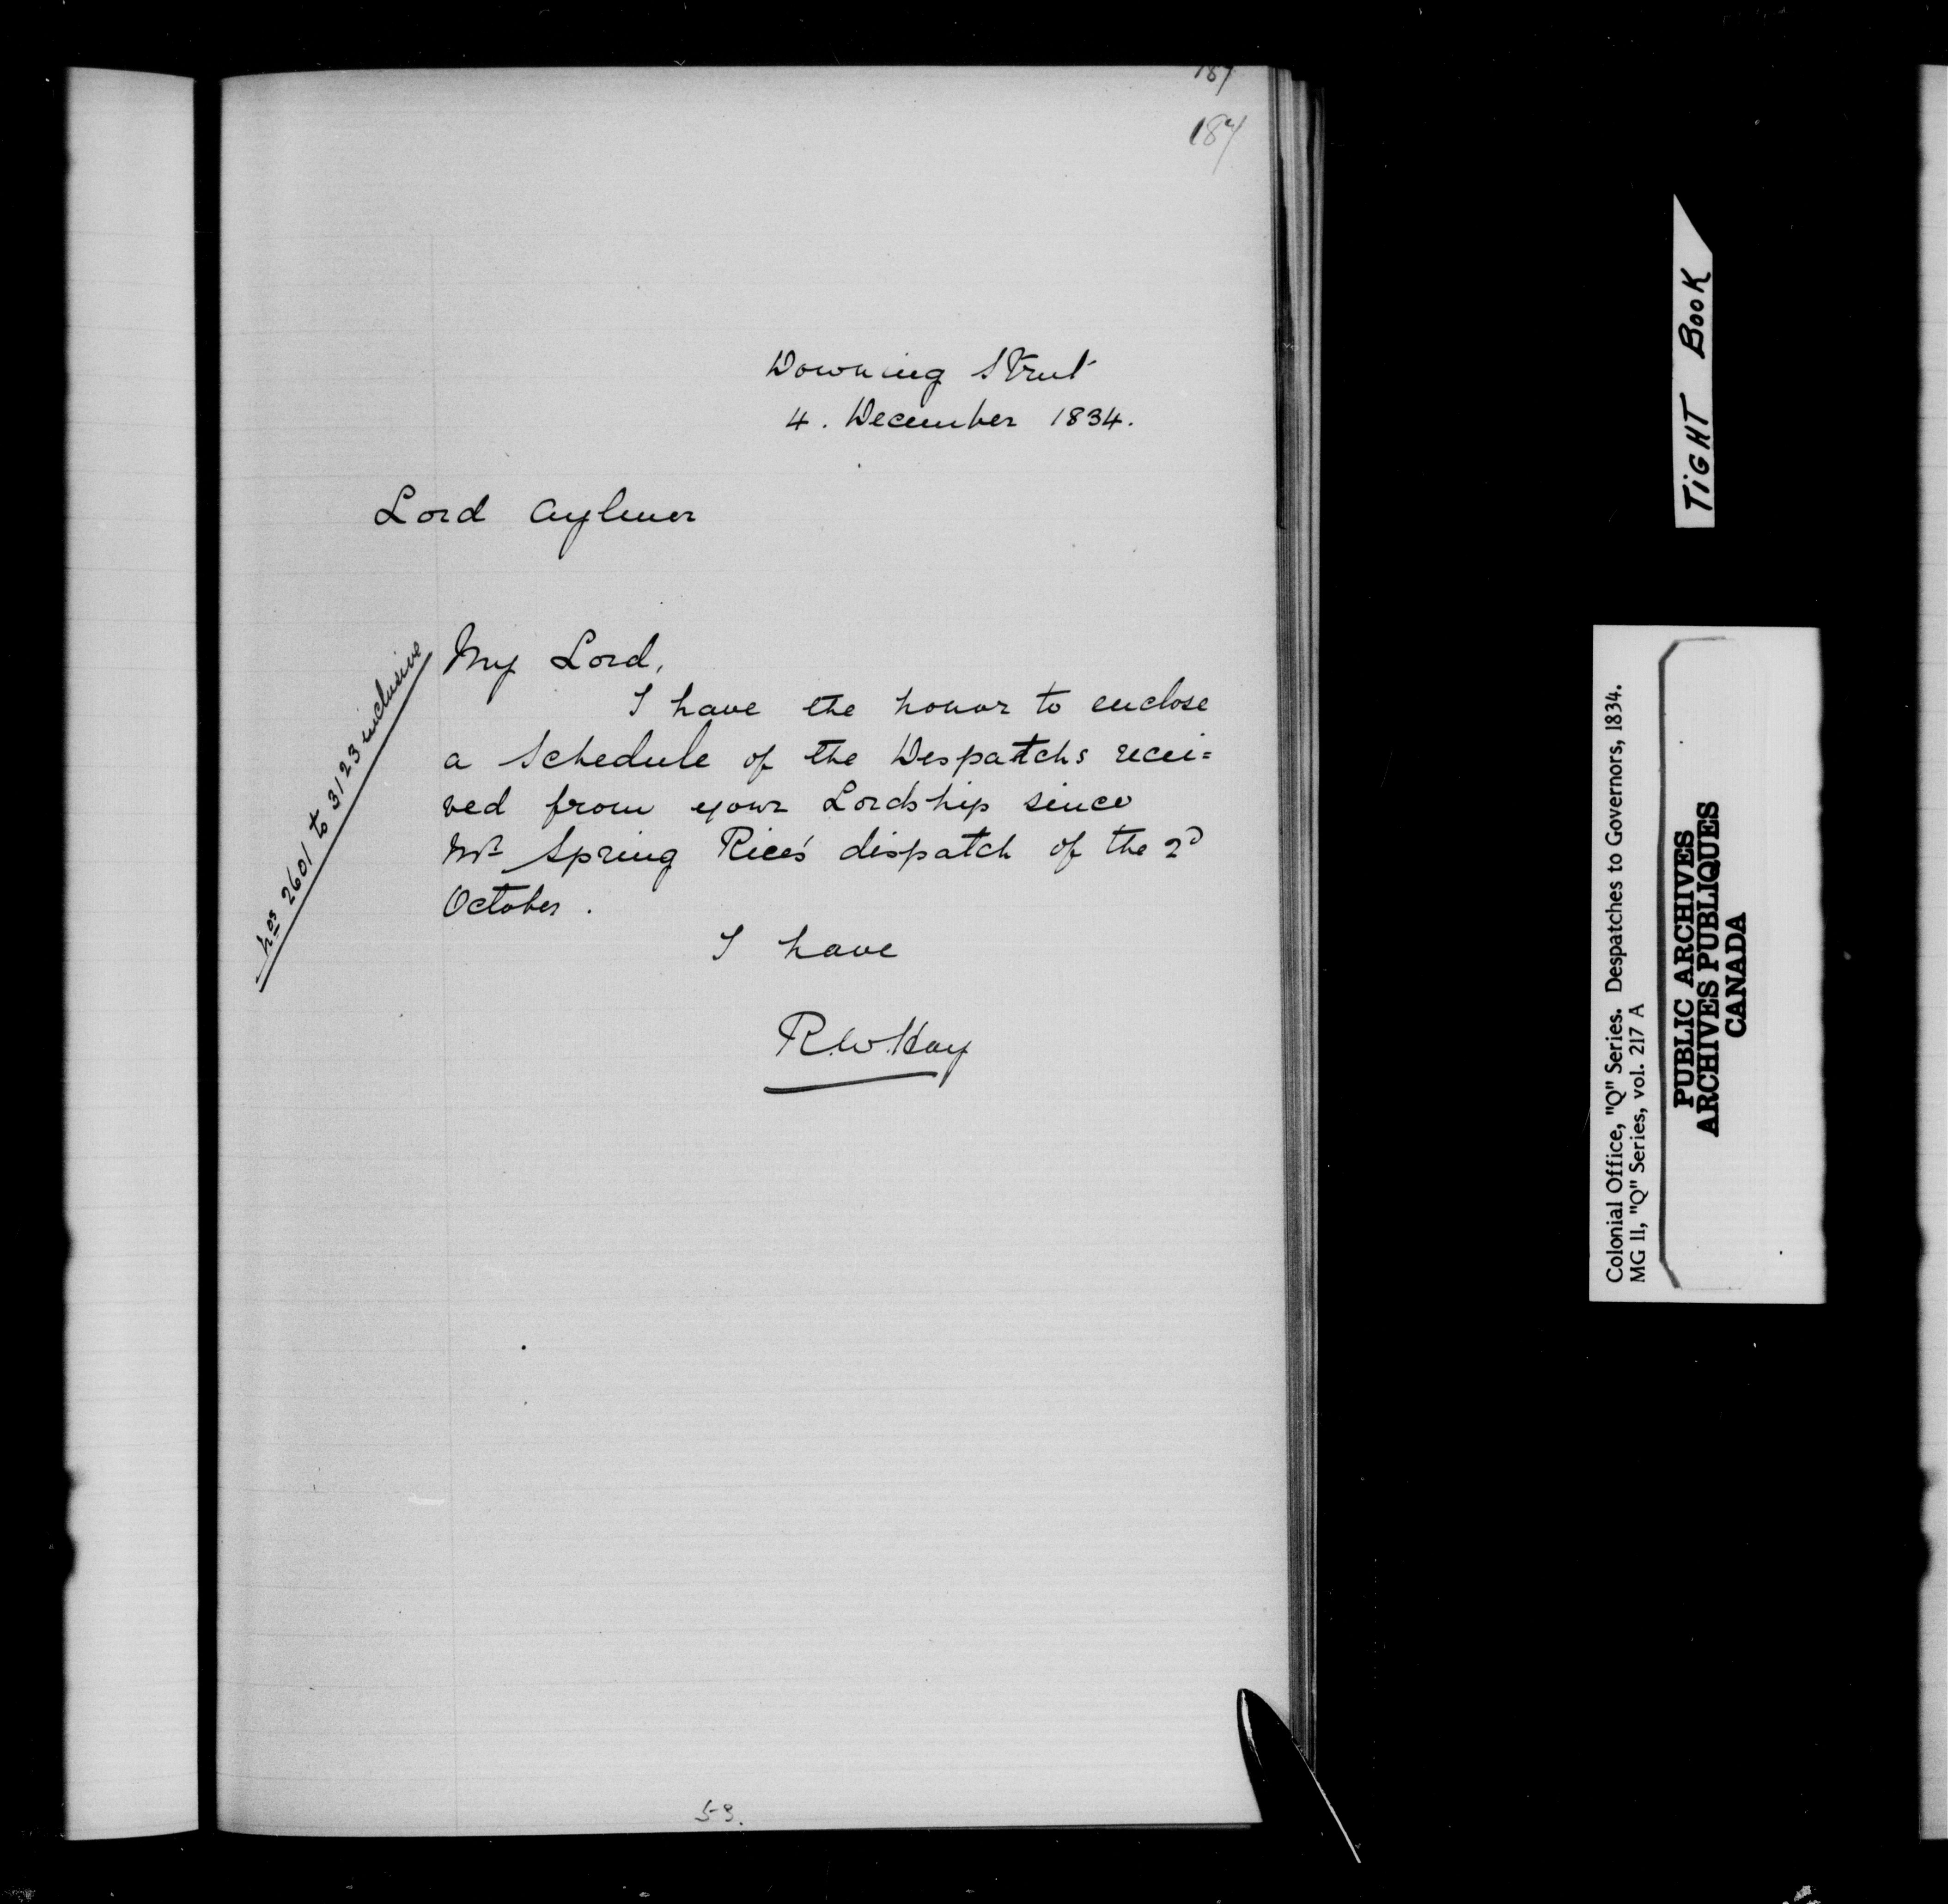 187
187
Downing Street
4. December 1834.
Lord Aylmer
Nos 2601 to 3123 inclusive
My Lord,
I have the honor to enclose
a Schedule of the Despatchs recei=
ved from your Lordship since
Mr Spring Rice's dispatch of the 2d
October.
I have
R.W.Hay
53.
TIGHT BOOK
Colonial Office, "Q" Series. Despatches to Governors, 1834.
MG 11, "Q" Series, vol. 217 A
PUBLIC ARCHIVES
ARCHIVES PUBLIQUES
CANADA